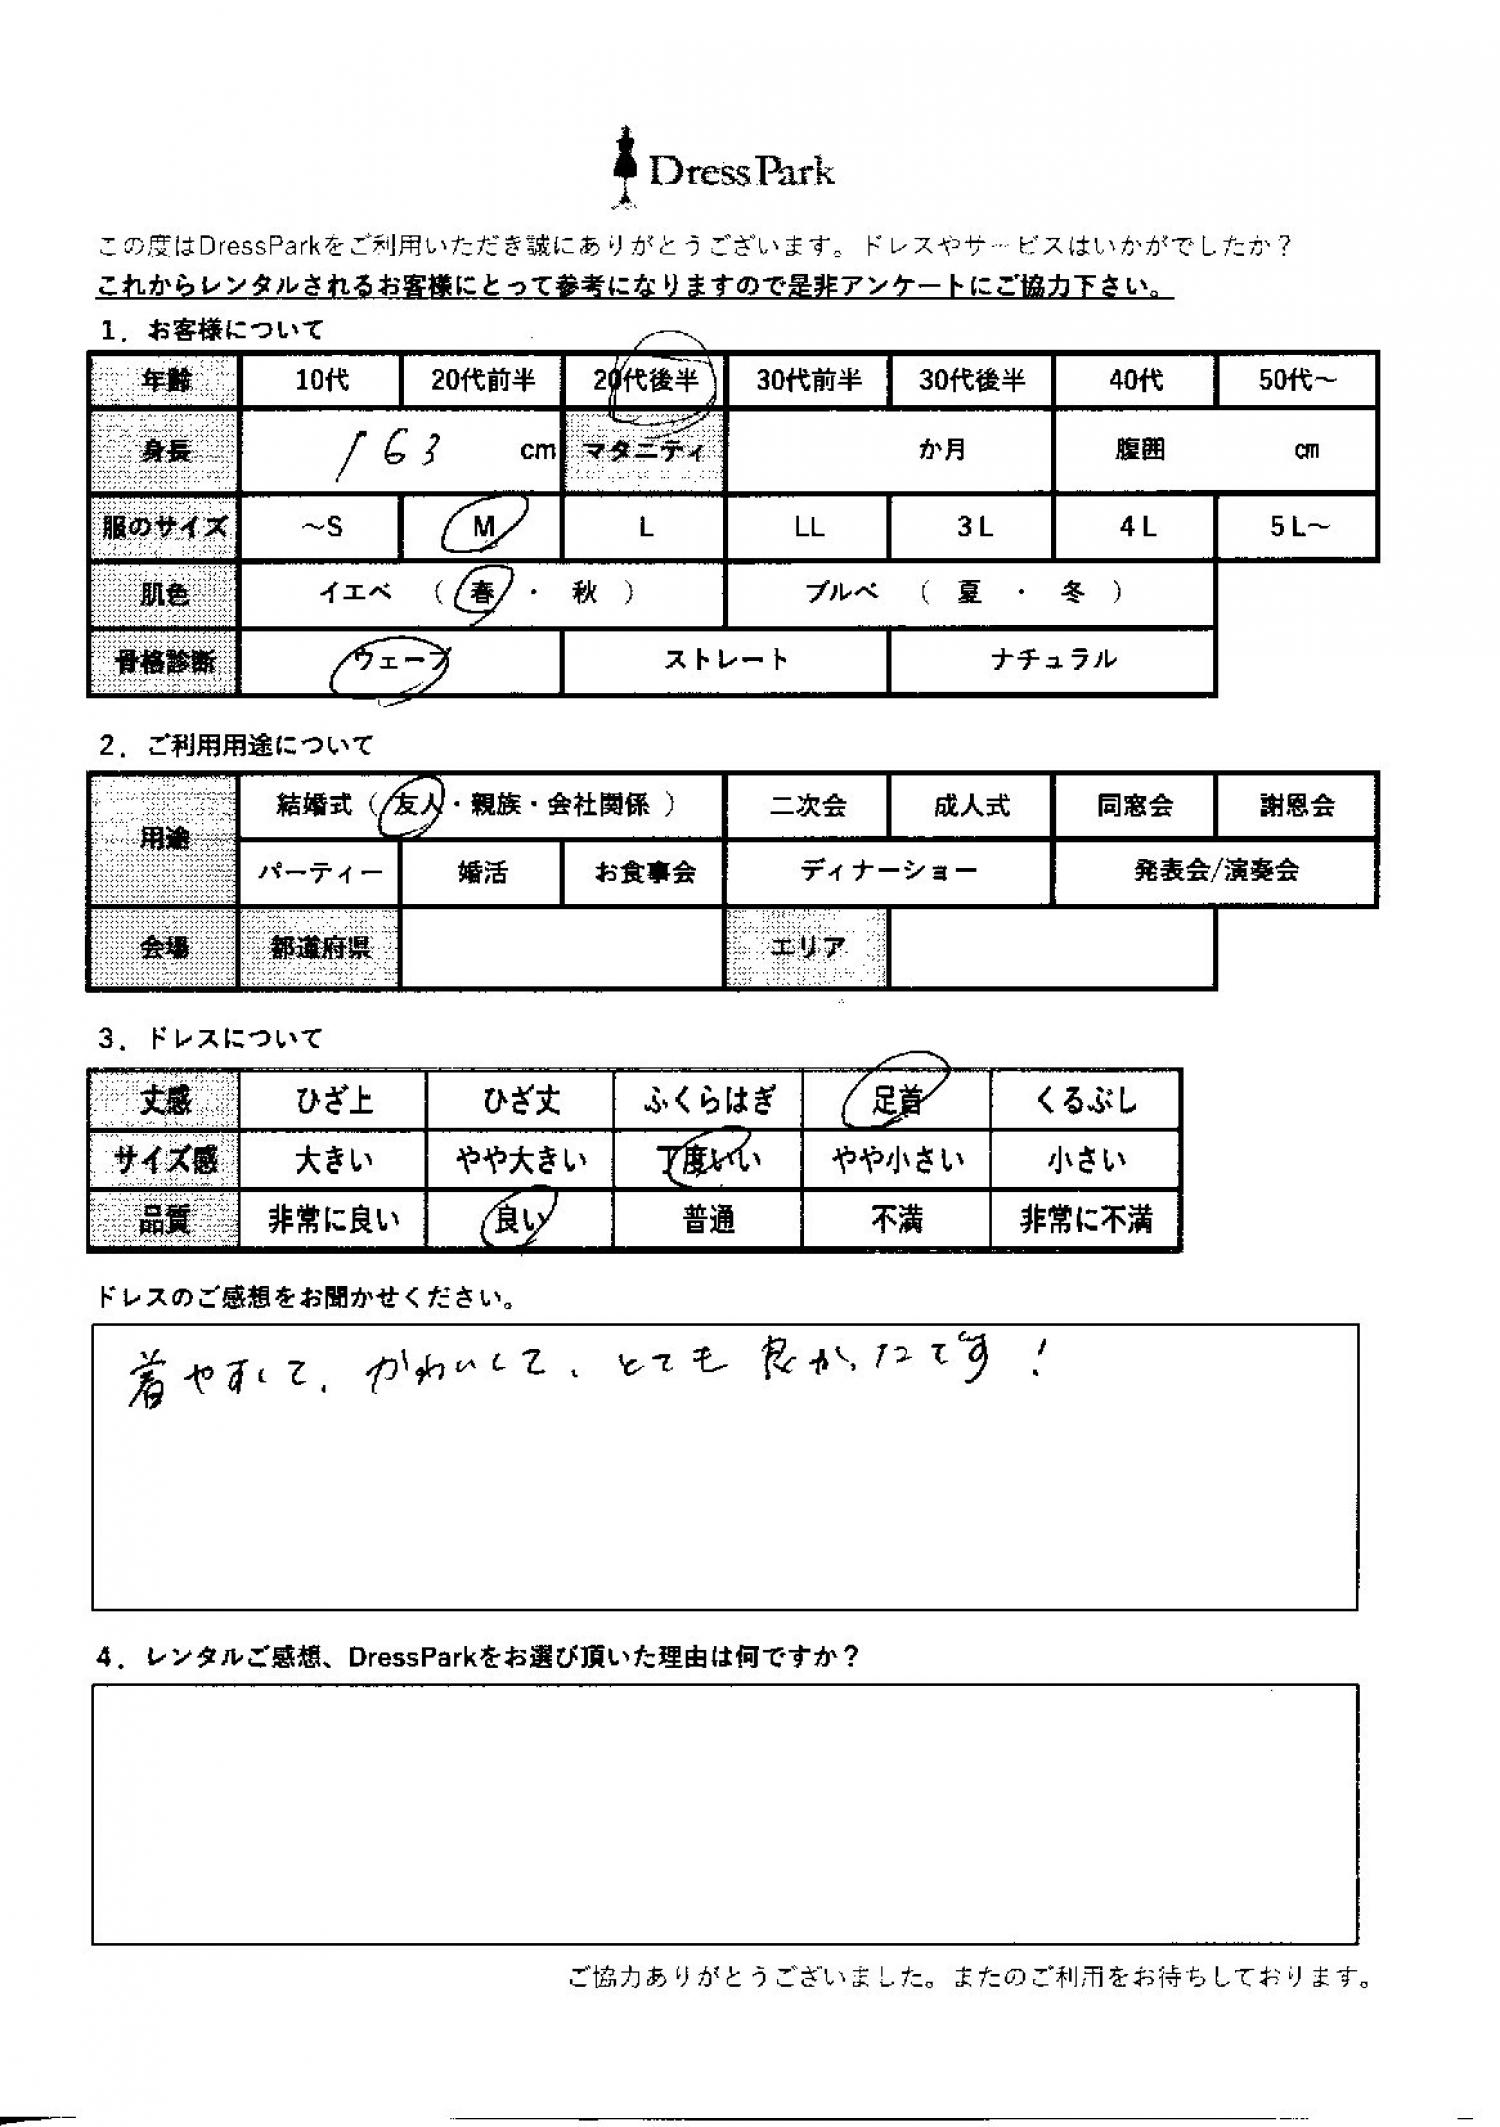 DressPark
この度はDressParkをご利用いただき誠にありがとうございます。ドレスやサービスはいかがでしたか？
これからレンタルされるお客様にとって参考になりますので是非アンケートにご協力下さい。
1．お客様について
年齢 10代 20代前半 20代後半 30代前半 30代後半 40代 50代～
身長 163 cm マタニティ か月 腹囲 ㎝
服のサイズ ～S M L LL 3L 4L 5L～
肌色 イエベ （ 春 ・ 秋 ） ブルベ （ 夏 ・ 冬 ）
骨格診断 ウェーブ ストレート ナチュラル
2．ご利用用途について
用途 結婚式（ 友人・親族・会社関係 ） 二次会 成人式 同窓会 謝恩会
パーティー 婚活 お食事会 ディナーショー 発表会/演奏会
会場 都道府県 エリア
3．ドレスについて
丈感 ひざ上 ひざ丈 ふくらはぎ 足首 くるぶし
サイズ感 大きい やや大きい 丁度いい やや小さい 小さい
品質 非常に良い 良い 普通 不満 非常に不満
ドレスのご感想をお聞かせください。
着やすくて、かわいくて、とても良かったです！
4．レンタルご感想、DressParkをお選び頂いた理由は何ですか？
ご協力ありがとうございました。またのご利用をお待ちしております。